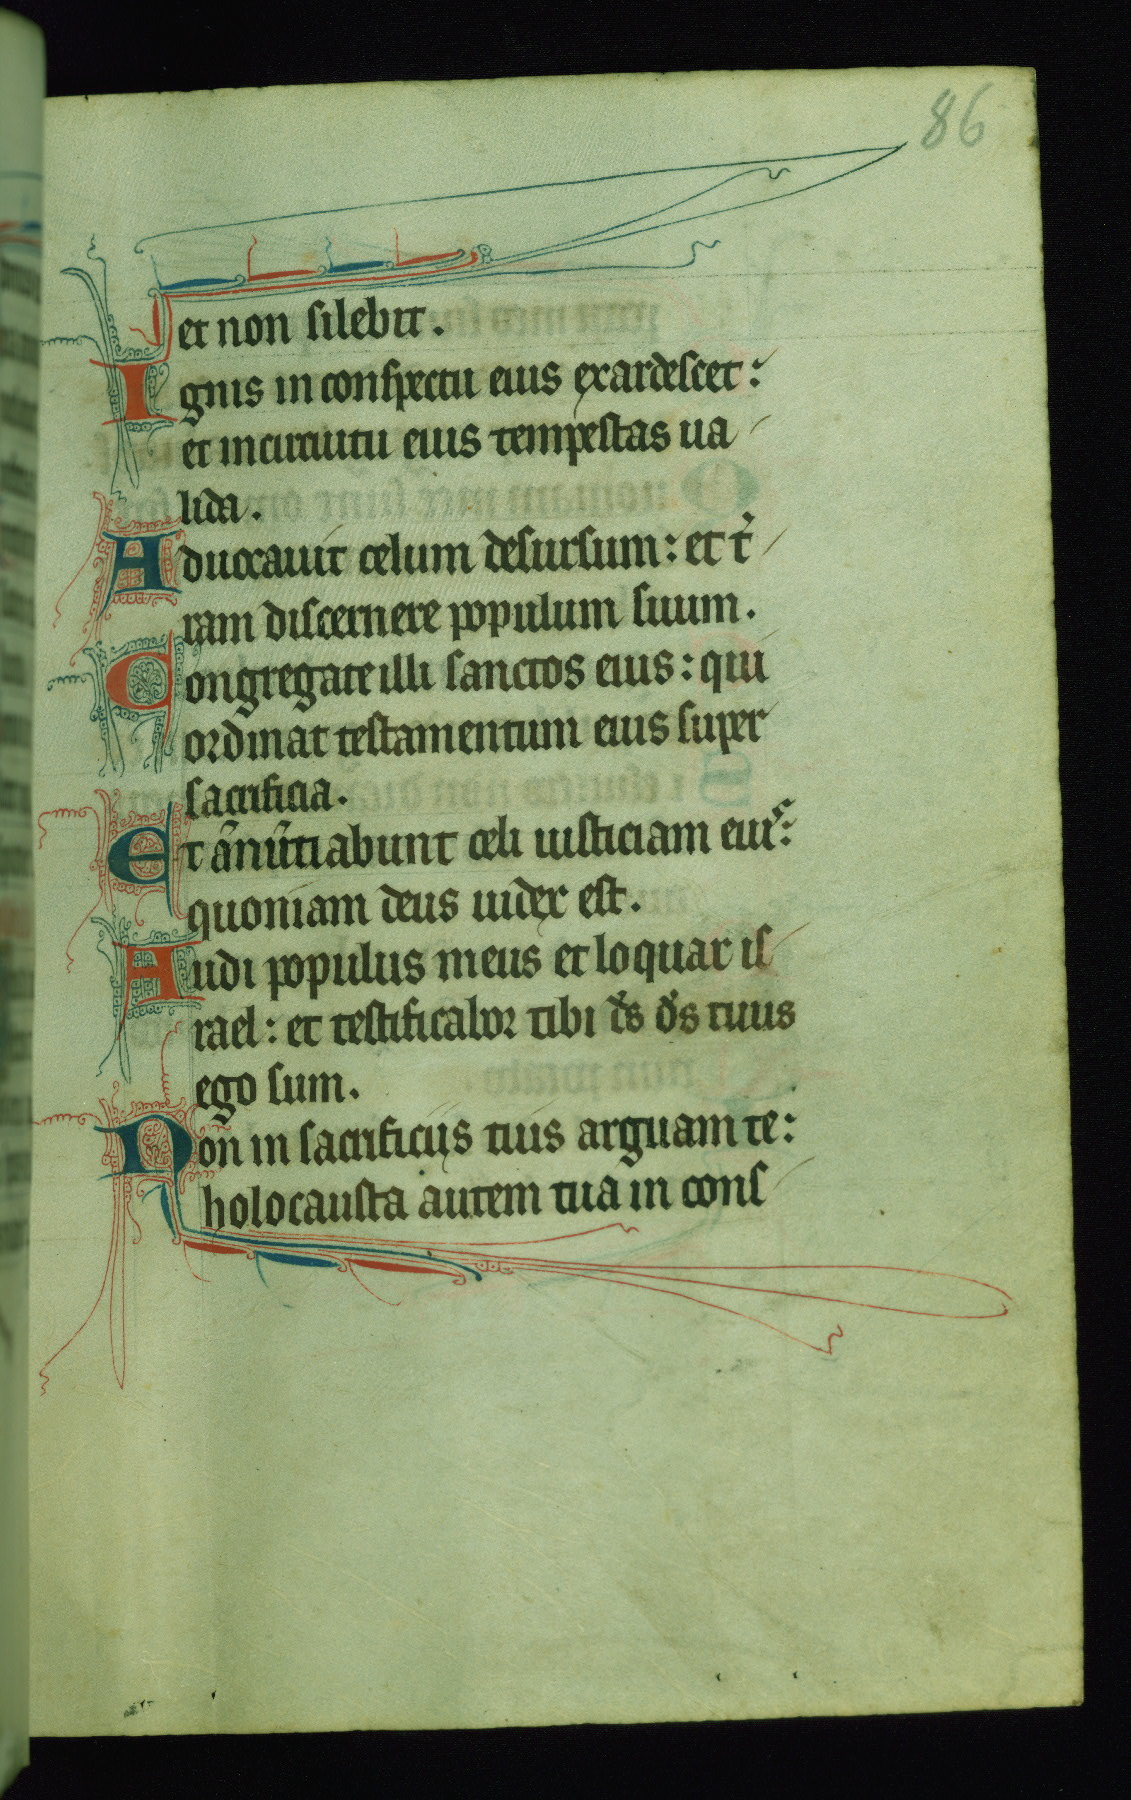 86
et non silebit.
Ignis in conspectu eius exardescet:
et in circuitu eius tempestas ua
lida.
Aduocauit celum desursum: et t̉
ram discernere populum suum.
Congregate illi sanctos eius: qui
ordinat testamentum eius super
sacrificia.
Et ãnũtiabunt celi iusticiam eius:
quoniam deus iudex est.
Audi populus meus et loquar is
rael: et testificabor tibi d̉s d̉s tuus
ego sum.
Non in sacrificiis tuis arguam te:
holocausta autem tua in cons